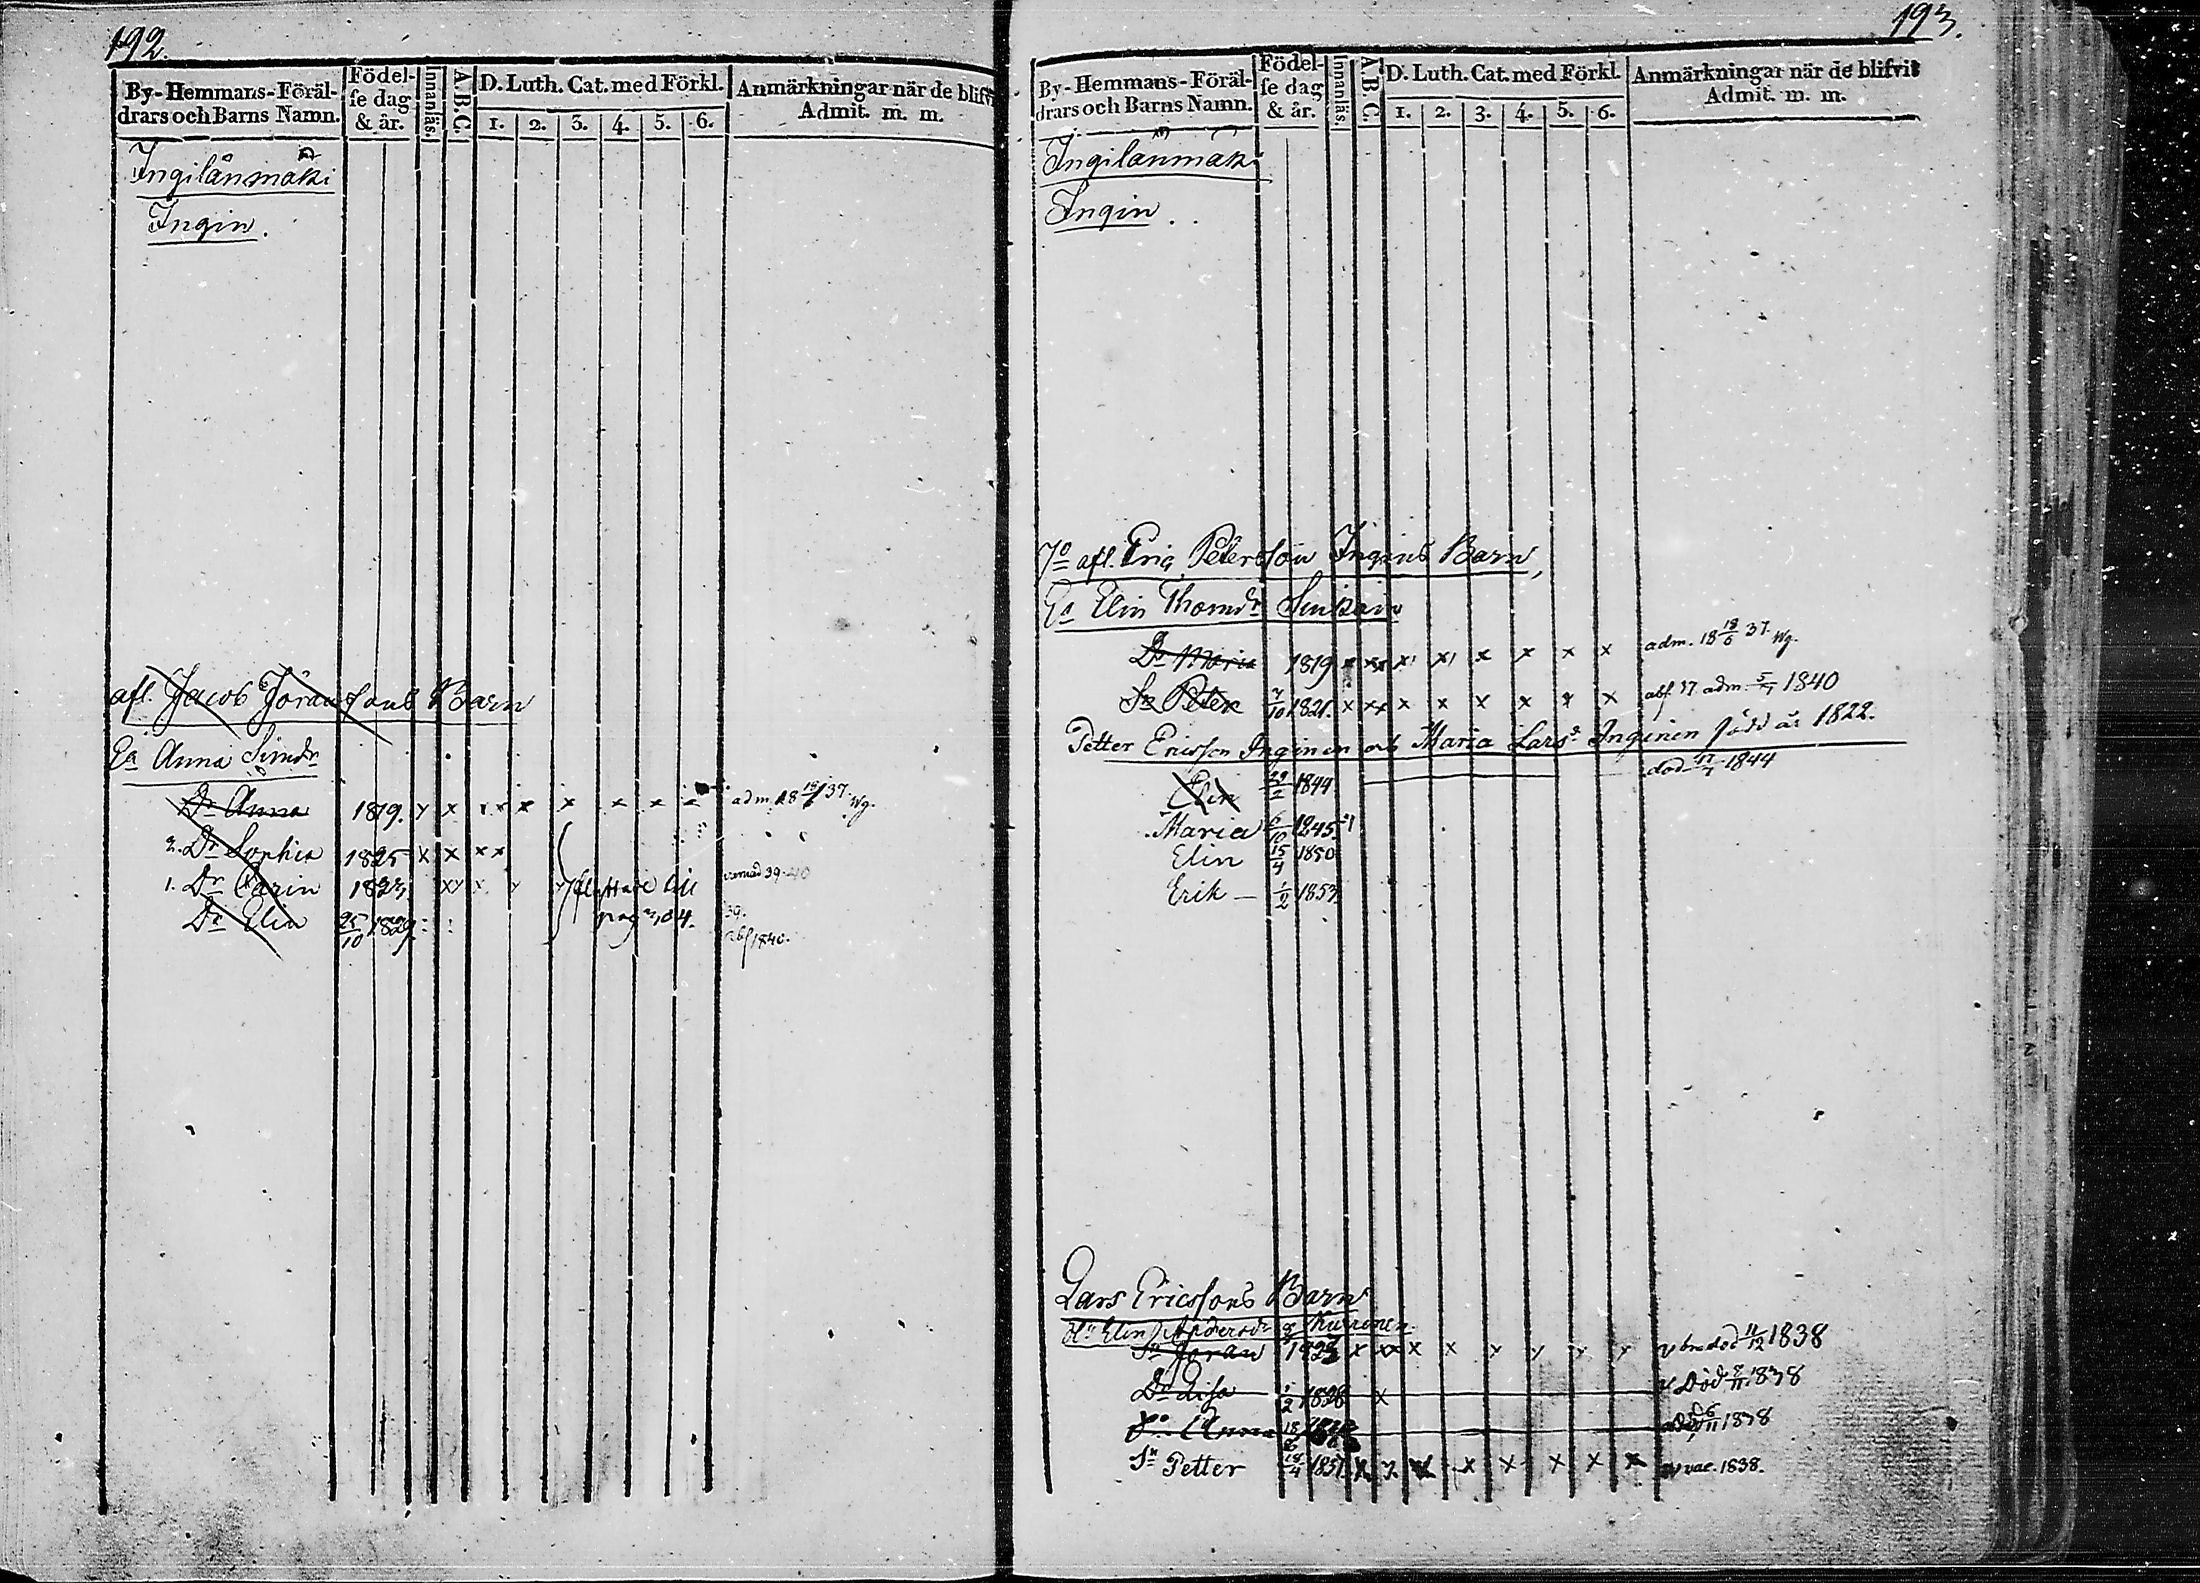 192.
By-Hemmans-Föräl-
drars och Barns Namn.
Födel-
se dag
& år.
Innanläs.
A.B.C.
D. Luth. Cat. med Förkl.
1. 2. 3. 4. 5. 6.
Anmärkningar när de blifvi
Admit. m. m.
Ingilänmäki
Ingin.
afl. Jacob Göranssons Barn
Ea Anna Simdr
Dr Anna 1819. x x x x x x x x x adm. 18 18/6 37. Wg.
2. Dr Sophia 1825 x x x x
1. Dr Carin flyttade till 39-40
Dr Elin 25/10 1829. pag 39.
abs 1840.
193.
By-Hemmans-Föräl-
drars och Barns Namn.
Födel-
se dag
& år.
Innanläs.
A.B.C.
D. Luth. Cat. med Förkl.
1. 2. 3. 4. 5. 6.
Anmärkningar när de blifvit
Admit. m. m.
Ingilänmäki
Ingin.
afl. Eric Petersson Ingins Barn,
Ea Elin Thomdr
Dr Maria 1819 x xx x x x x x x adm. 18 18/6 37. Wg.
Sn Peter 7/10 1821. x xx x x x x x x abs. 37 adm. 1840
Petter Ericsson Inginen och Maria Larsd. Inginen född år 1822.
Elin 29/2 1844 död 1844
Maria 6/10 1845
Elin 15/4 1850
Erik — 1/2 1853
Lars Ericssons Barn
Hu Elin Andersdr Kurronen
Sn Göran x xx x x x x x x död 11/12 1838
Dr Lisa 1/2 1828 x Död 8/11 1838
Anna 18/8 Död 6/11 1838
Sn Petter 18/4 x x x x x x x vac. 1838.